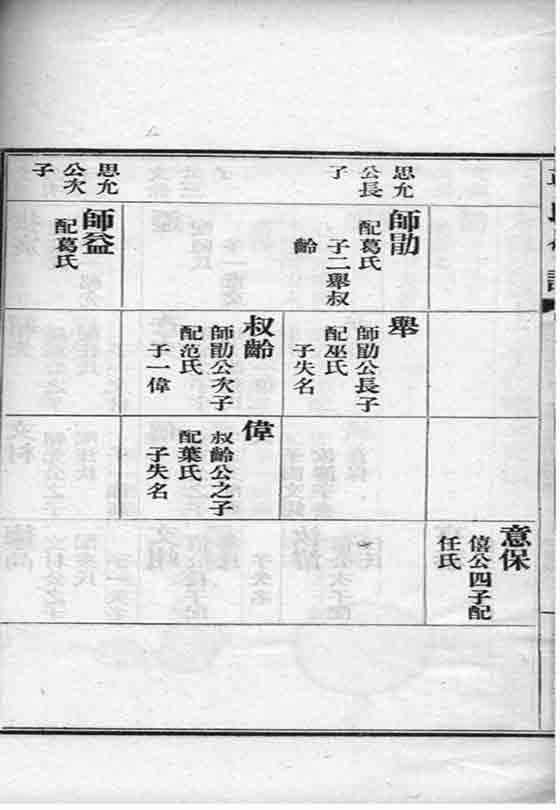 思允
公長
子
師勛
配葛氏
子二舉叔
齡
思允
公次
子
師益
配葛氏
舉
師勛公長子
配巫氏
子失名
叔齡
師勛公次子
配范氏
子一偉
偉
叔齡公之子
配葉氏
子失名
意保
僖公四子配
任氏